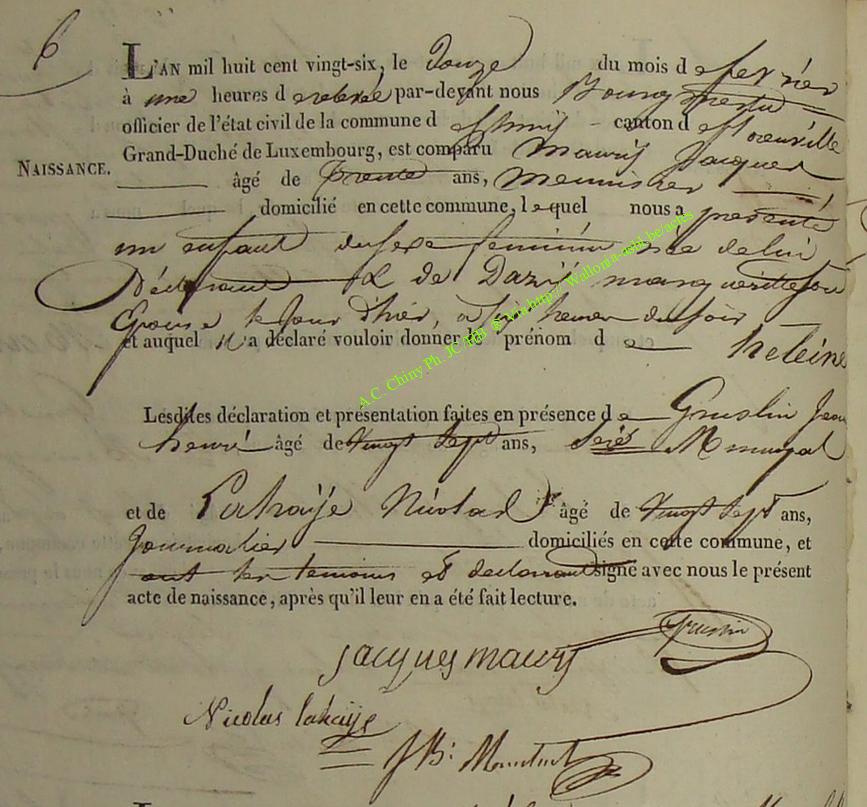 6
L'AN mil huit cent vingt-six, le Douze du mois de fevrier
à une heures de relevée par-devant nous Bourgmestre
officier de l'état civil de la commune de Chiny canton de florenville
NAISSANCE.
Grand-Duché de Luxembourg, est comparu Maury Jacques
âgé de trente ans, Meunisier
domicilié en cette commune, lequel nous a presenté
un enfant du sexe feminin née de lui
Déclarant & de Marguerite son
Epouse le jour d'hier, à six heures du soir
et auquel il a déclaré vouloir donner le prénom de heleine
Lesdites déclaration et présentation faites en présence de Gruslin Jean
henri âgé de vingt sept ans, Municipal
et de Lahaÿe Nicolas âgé de vingt sept ans,
Journalier domiciliés en cette commune, et
ont les temoins et declarant signé avec nous le présent
acte de naissance, après qu'il leur en a été fait lecture.
Gruslin
jacques maury
Nicolas lahaÿe
J B:
A.C. Chiny Ph. JC HB © via http:// Wallonia-asbl.be/actes